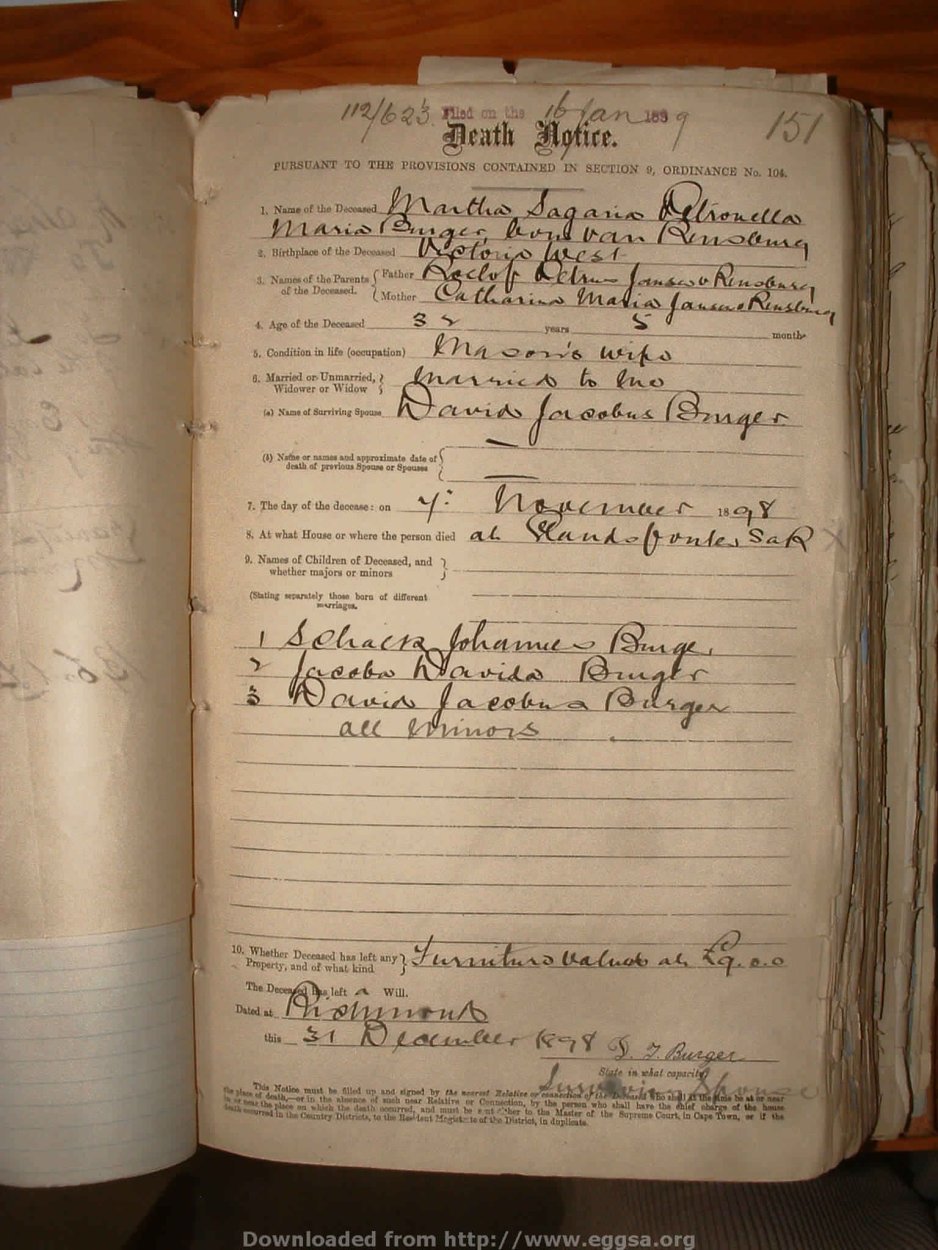 112/623 Filed on the 16 Jan 1899 151
Death Notice.
PURSUANT TO THE PROVISIONS CONTAINED IN SECTION 9, ORDINANCE No. 104.
1. Name of the Deceased Martha Sagaria Petronella
Maria Burger, born van Rensburg
2. Birthplace of the Deceased Victoria West
3. Names of the Parents of the Deceased. { Father Roelof Petrus Jansen v Rensburg
Mother Catharina Maria Jansen v Rensburg
4. Age of the Deceased 32 years 5 months
5. Condition in life (occupation) Mason's wife
6. Married or Unmarried, Widower or Widow } Married to me
(a) Name of Surviving Spouse David Jacobus Burger
(b) Name or names and approximate date of death of previous Spouse or Spouses { —
—
7. The day of the decease: on 7: November 1898
8. At what House or where the person died at Elandsfontein SAR
9. Names of Children of Deceased, and whether majors or minors }
(Stating separately those born of different marriages.
1 Schalk Johannes Burger
2 Jacoba Davida Burger
3 David Jacobus Burger
all minors
10. Whether Deceased has left any Property, and of what kind } Furniture valued at £9.0.0
The Deceased has left a Will.
Dated at Richmond
this 31 December 1898 D. J. Burger
State in what capacity
Surviving Spouse
This Notice must be filled up and signed by the nearest Relative or connection of the Deceased who shall at the time be at or near
the place of death,—or in the absence of such near Relative or Connection, by the person who shall have the chief charge of the house
in or near the place on which the death occurred, and must be sent either to the Master of the Supreme Court, in Cape Town, or if the
death occurred in the Country Districts, to the Resident Magistrate of the District, in duplicate.
Downloaded from http://www.eggsa.org